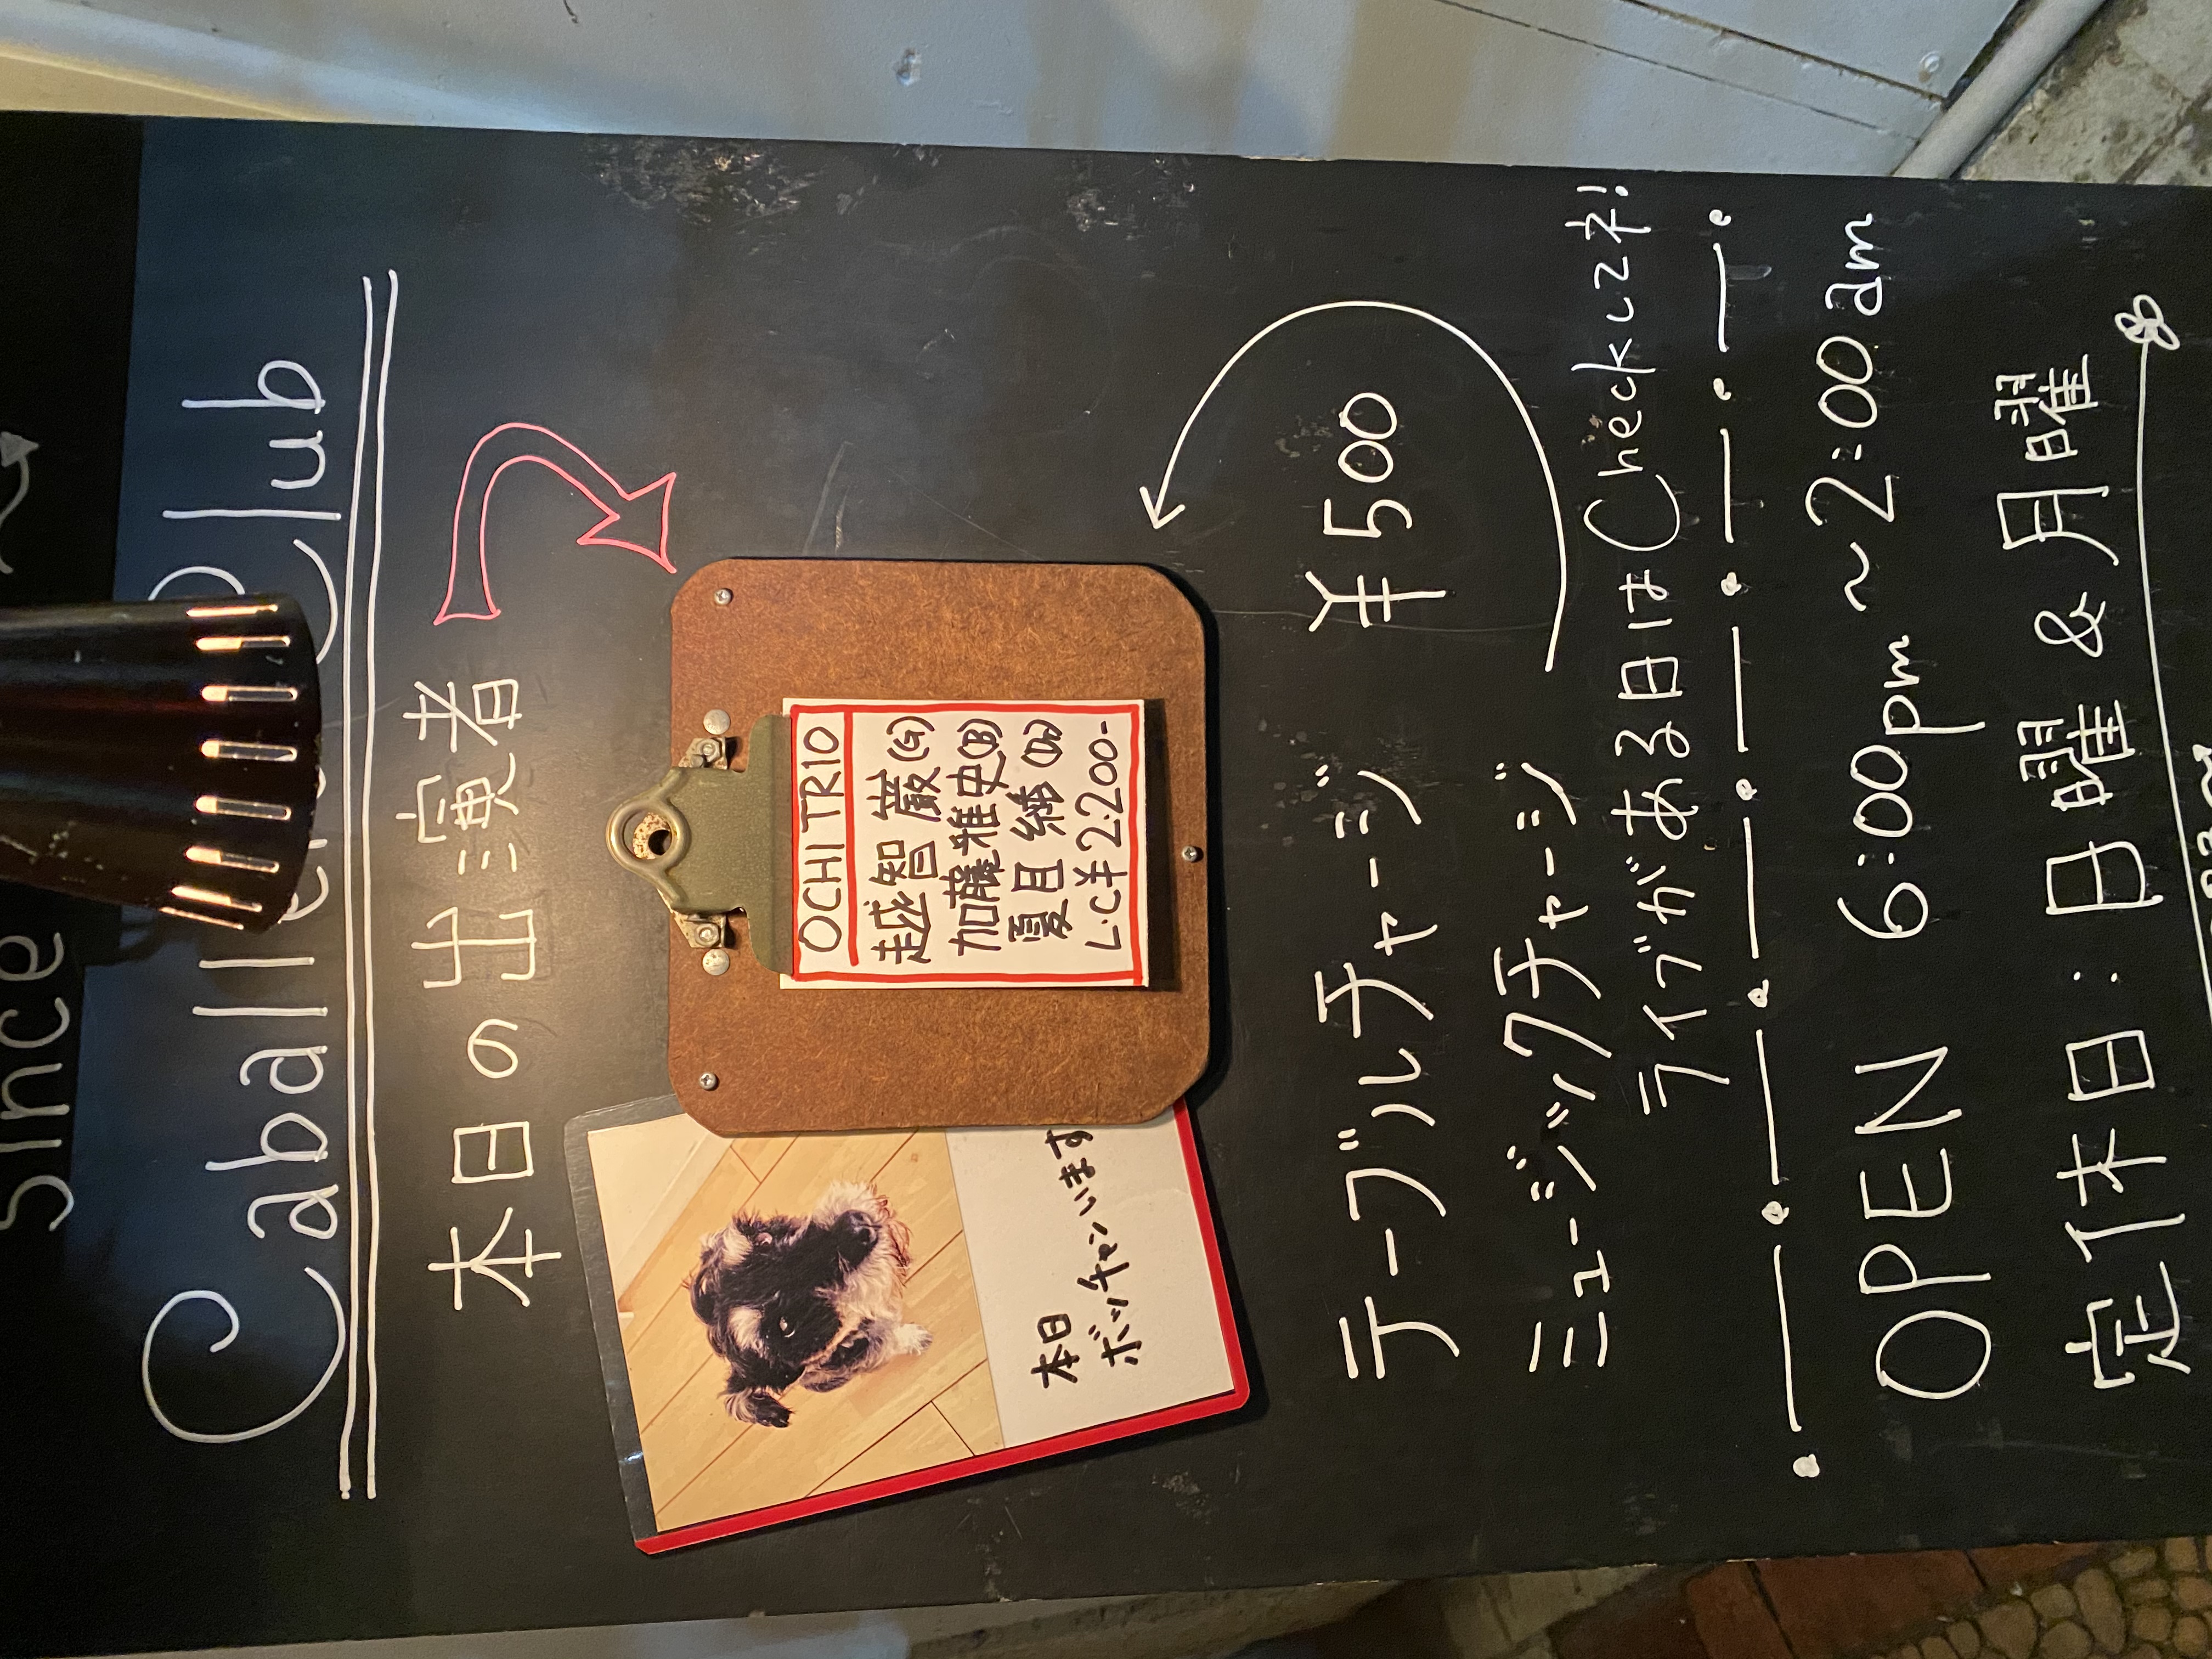 Since
Club
本日の出演者
OCHI TRIO
越智 巌(G)
加藤雅史(B)
夏目 純(Ds)
L.C¥2.200-
本日
ボッチャンいます
テーブルチャージ ¥500
ミュージックチャージ
ライブがある日はCheckしてネ!
OPEN 6:00pm ~2:00am
定休日:日曜 & 月曜